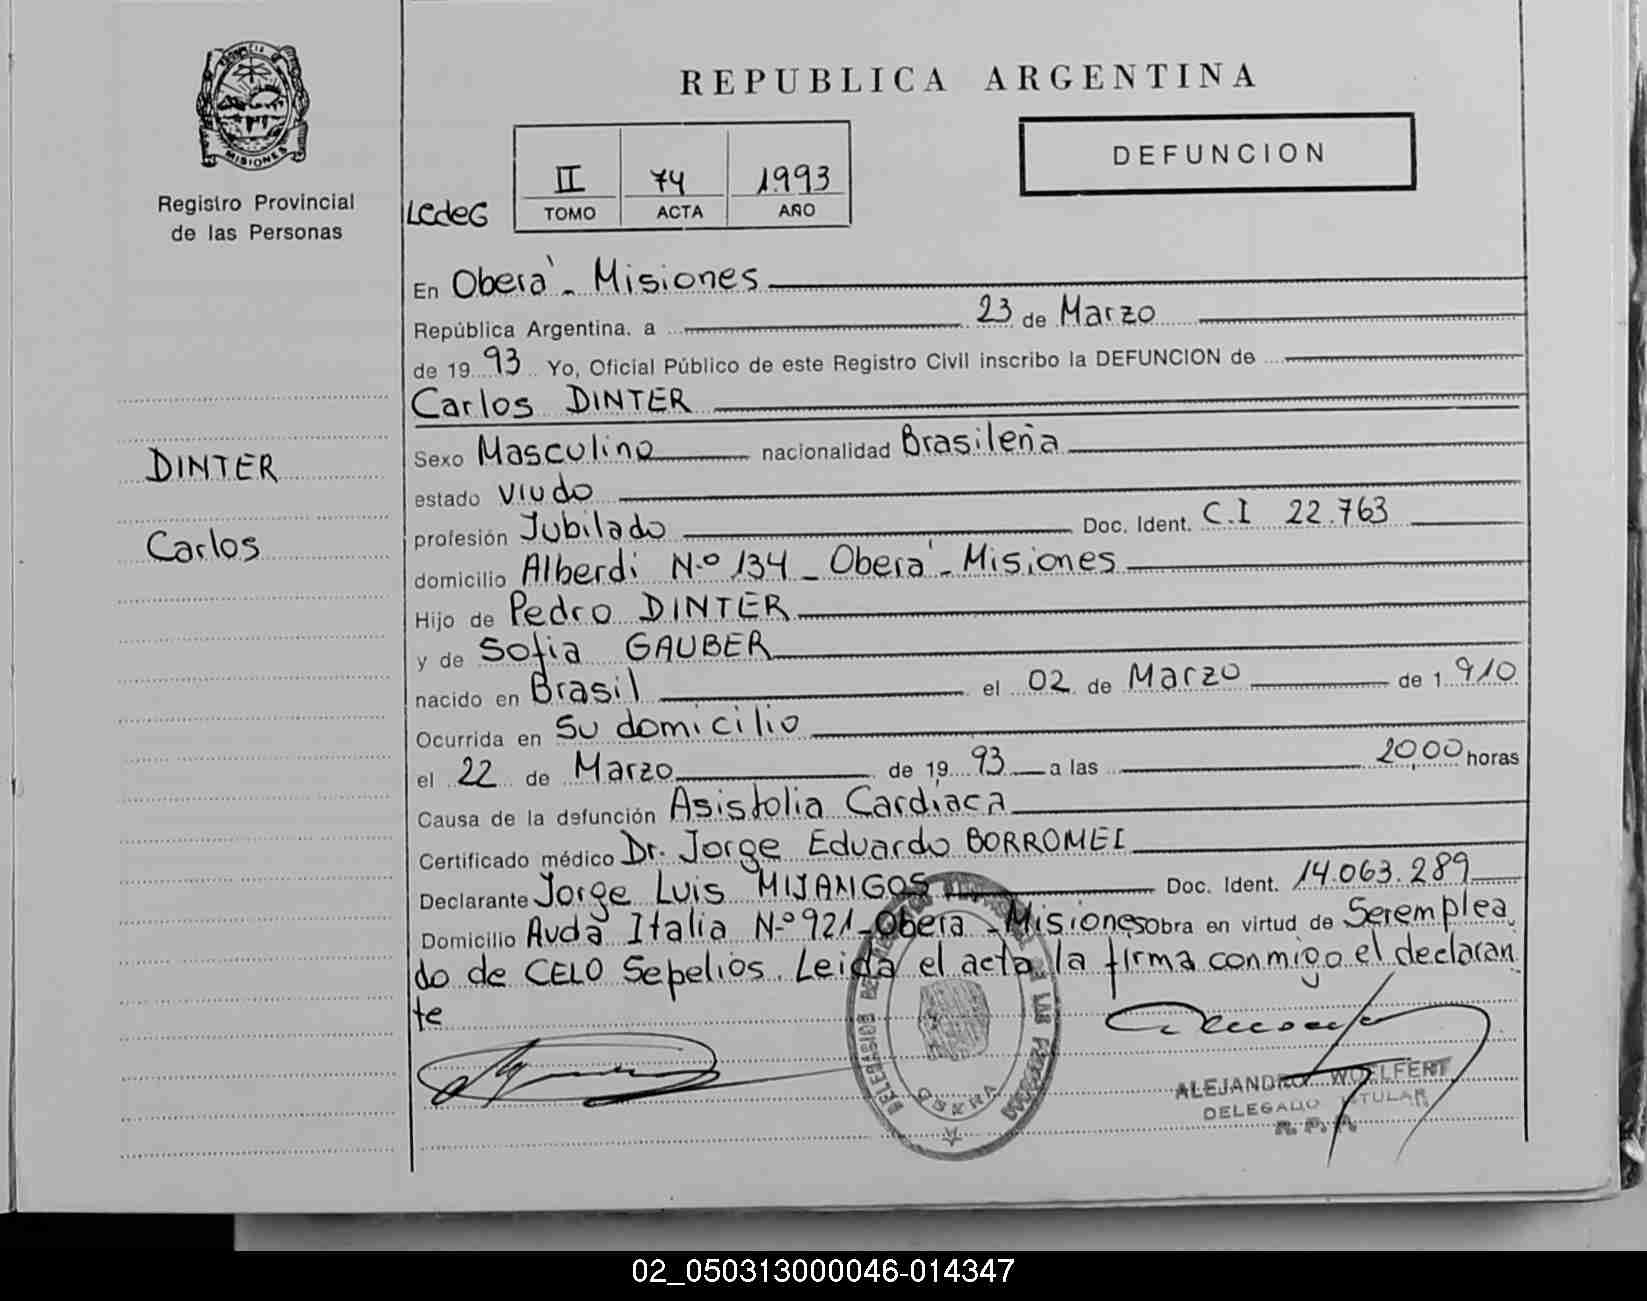 REPUBLICA ARGENTINA
PROVINCIA DE
MISIONES
Registro Provincial
de las Personas
DEFUNCION
II 74 1993
TOMO ACTA AÑO
LedeG
En Oberà - Misiones
República Argentina. a 23 de Marzo
de 1993 Yo, Oficial Público de este Registro Civil inscribo la DEFUNCION de
Carlos DINTER
DINTER
Carlos
Sexo Masculino nacionalidad Brasileña
estado viudo
profesión Jubilado Doc. Ident. C.I 22.763
domicilio Alberdi N.º 134 - Obera' - Misiones
Hijo de Pedro DINTER
y de Sofia GAUBER
nacido en Brasil el 02 de Marzo de 1910
Ocurrida en su domicilio
el 22 de Marzo de 1993 a las 20,00 horas
Causa de la defunción Asistolia Cardiaca
Certificado médico Dr. Jorge Eduardo BORROMEI
Declarante Jorge Luis MIJANGOS Doc. Ident. 14.063.289
Domicilio Avda Italia N.º 921 - Obera - Misiones obra en virtud de Ser emplea
do de CELO Sepelios. Leida el acta la firma conmigo el declaran
te
DELEGACION DE LAS PERSONAS
OBERA
ALEJANDRO WOELFERT
DELEGADO TITULAR
R. P. A.
02_050313000046-014347